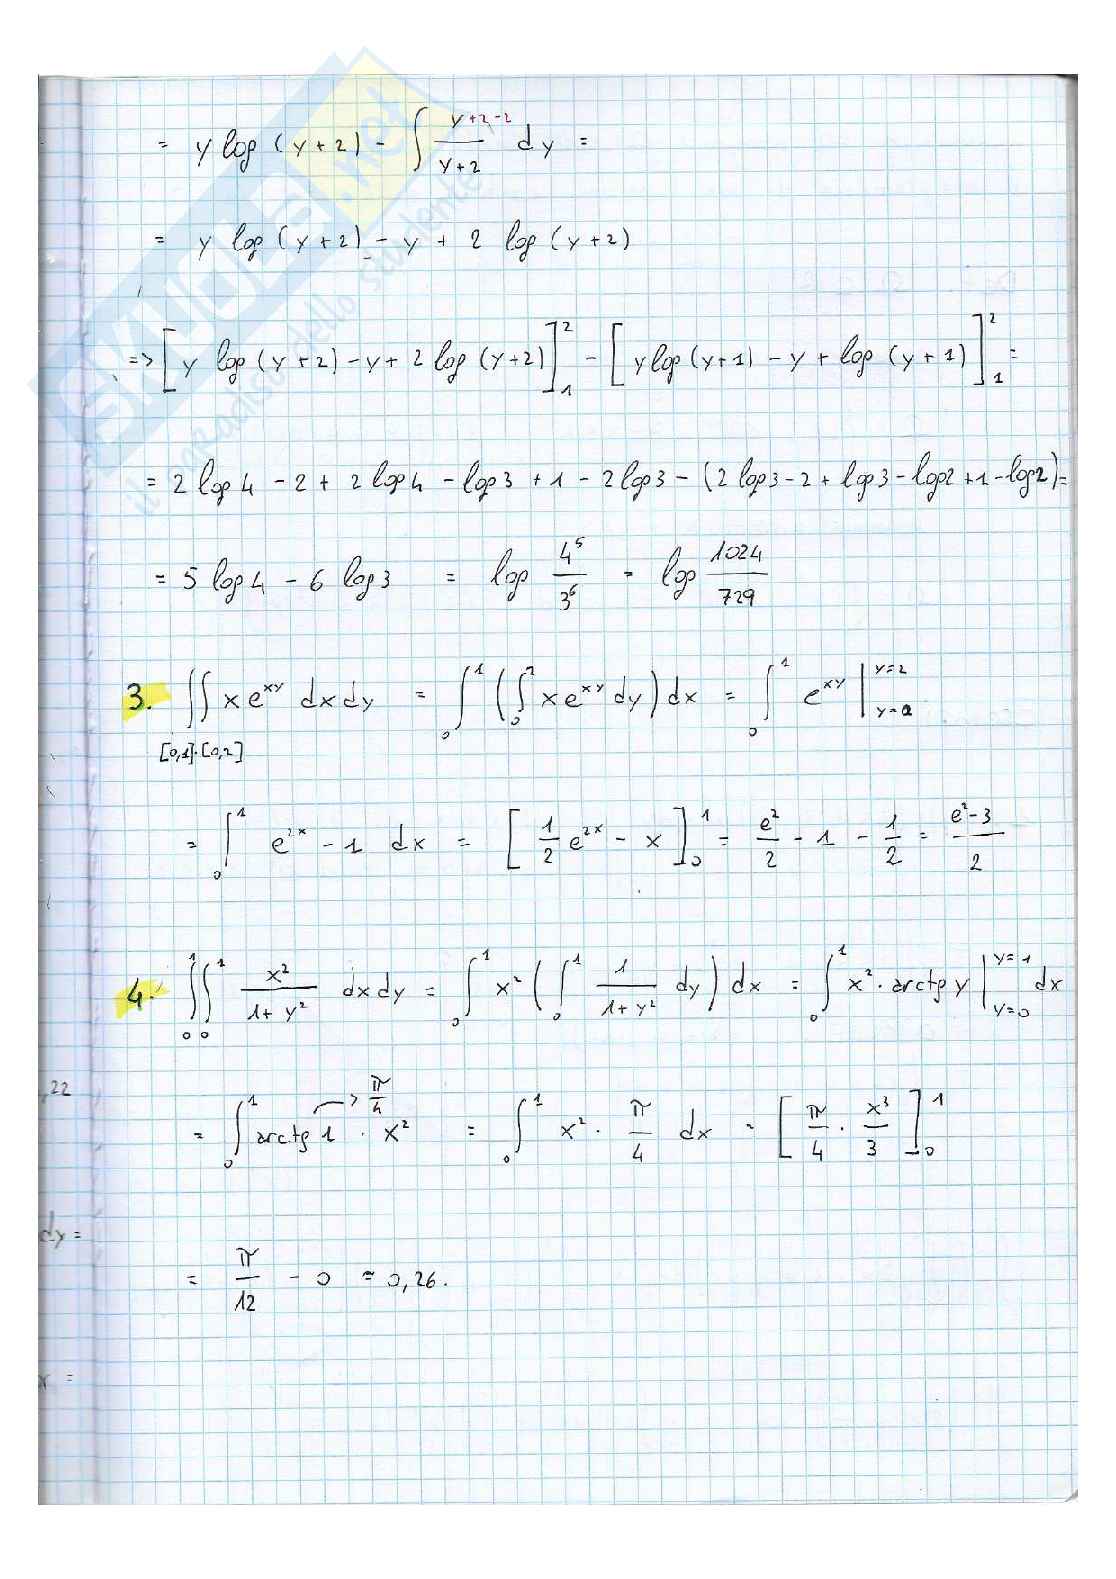 = y log (y+2) - ∫ (y+2-2)/(y+2) dy =
= y log (y+2) - y + 2 log (y+2)
=> [y log (y+2) - y + 2 log (y+2)]₁² - [y log (y+1) - y + log (y+1)]₁² =
= 2 log 4 - 2 + 2 log 4 - log 3 + 1 - 2 log 3 - (2 log 3 - 2 + log 3 - log 2 + 1 - log 2) =
= 5 log 4 - 6 log 3 = log 4⁵/3⁶ = log 1024/729
3. ∬ x e^xy dx dy = ∫₀¹ (∫₀² x e^xy dy) dx = ∫₀¹ e^xy |y=2 y=0
[0,1]·[0,2]
= ∫₀¹ e^2x - 1 dx = [1/2 e^2x - x]₀¹ = e²/2 - 1 - 1/2 = (e²-3)/2
4. ∫₀¹∫₀¹ x²/(1+y²) dx dy = ∫₀¹ x² (∫₀¹ 1/(1+y²) dy) dx = ∫₀¹ x² · arctg y |y=1 y=0 dx
,22
= ∫₀¹ arctg 1 → π/4 · x² = ∫₀¹ x² · π/4 dx = [π/4 · x³/3]₀¹
dy =
= π/12 - 0 ≃ 0,26.
x =
SKUOLA.net
il paradiso dello studente